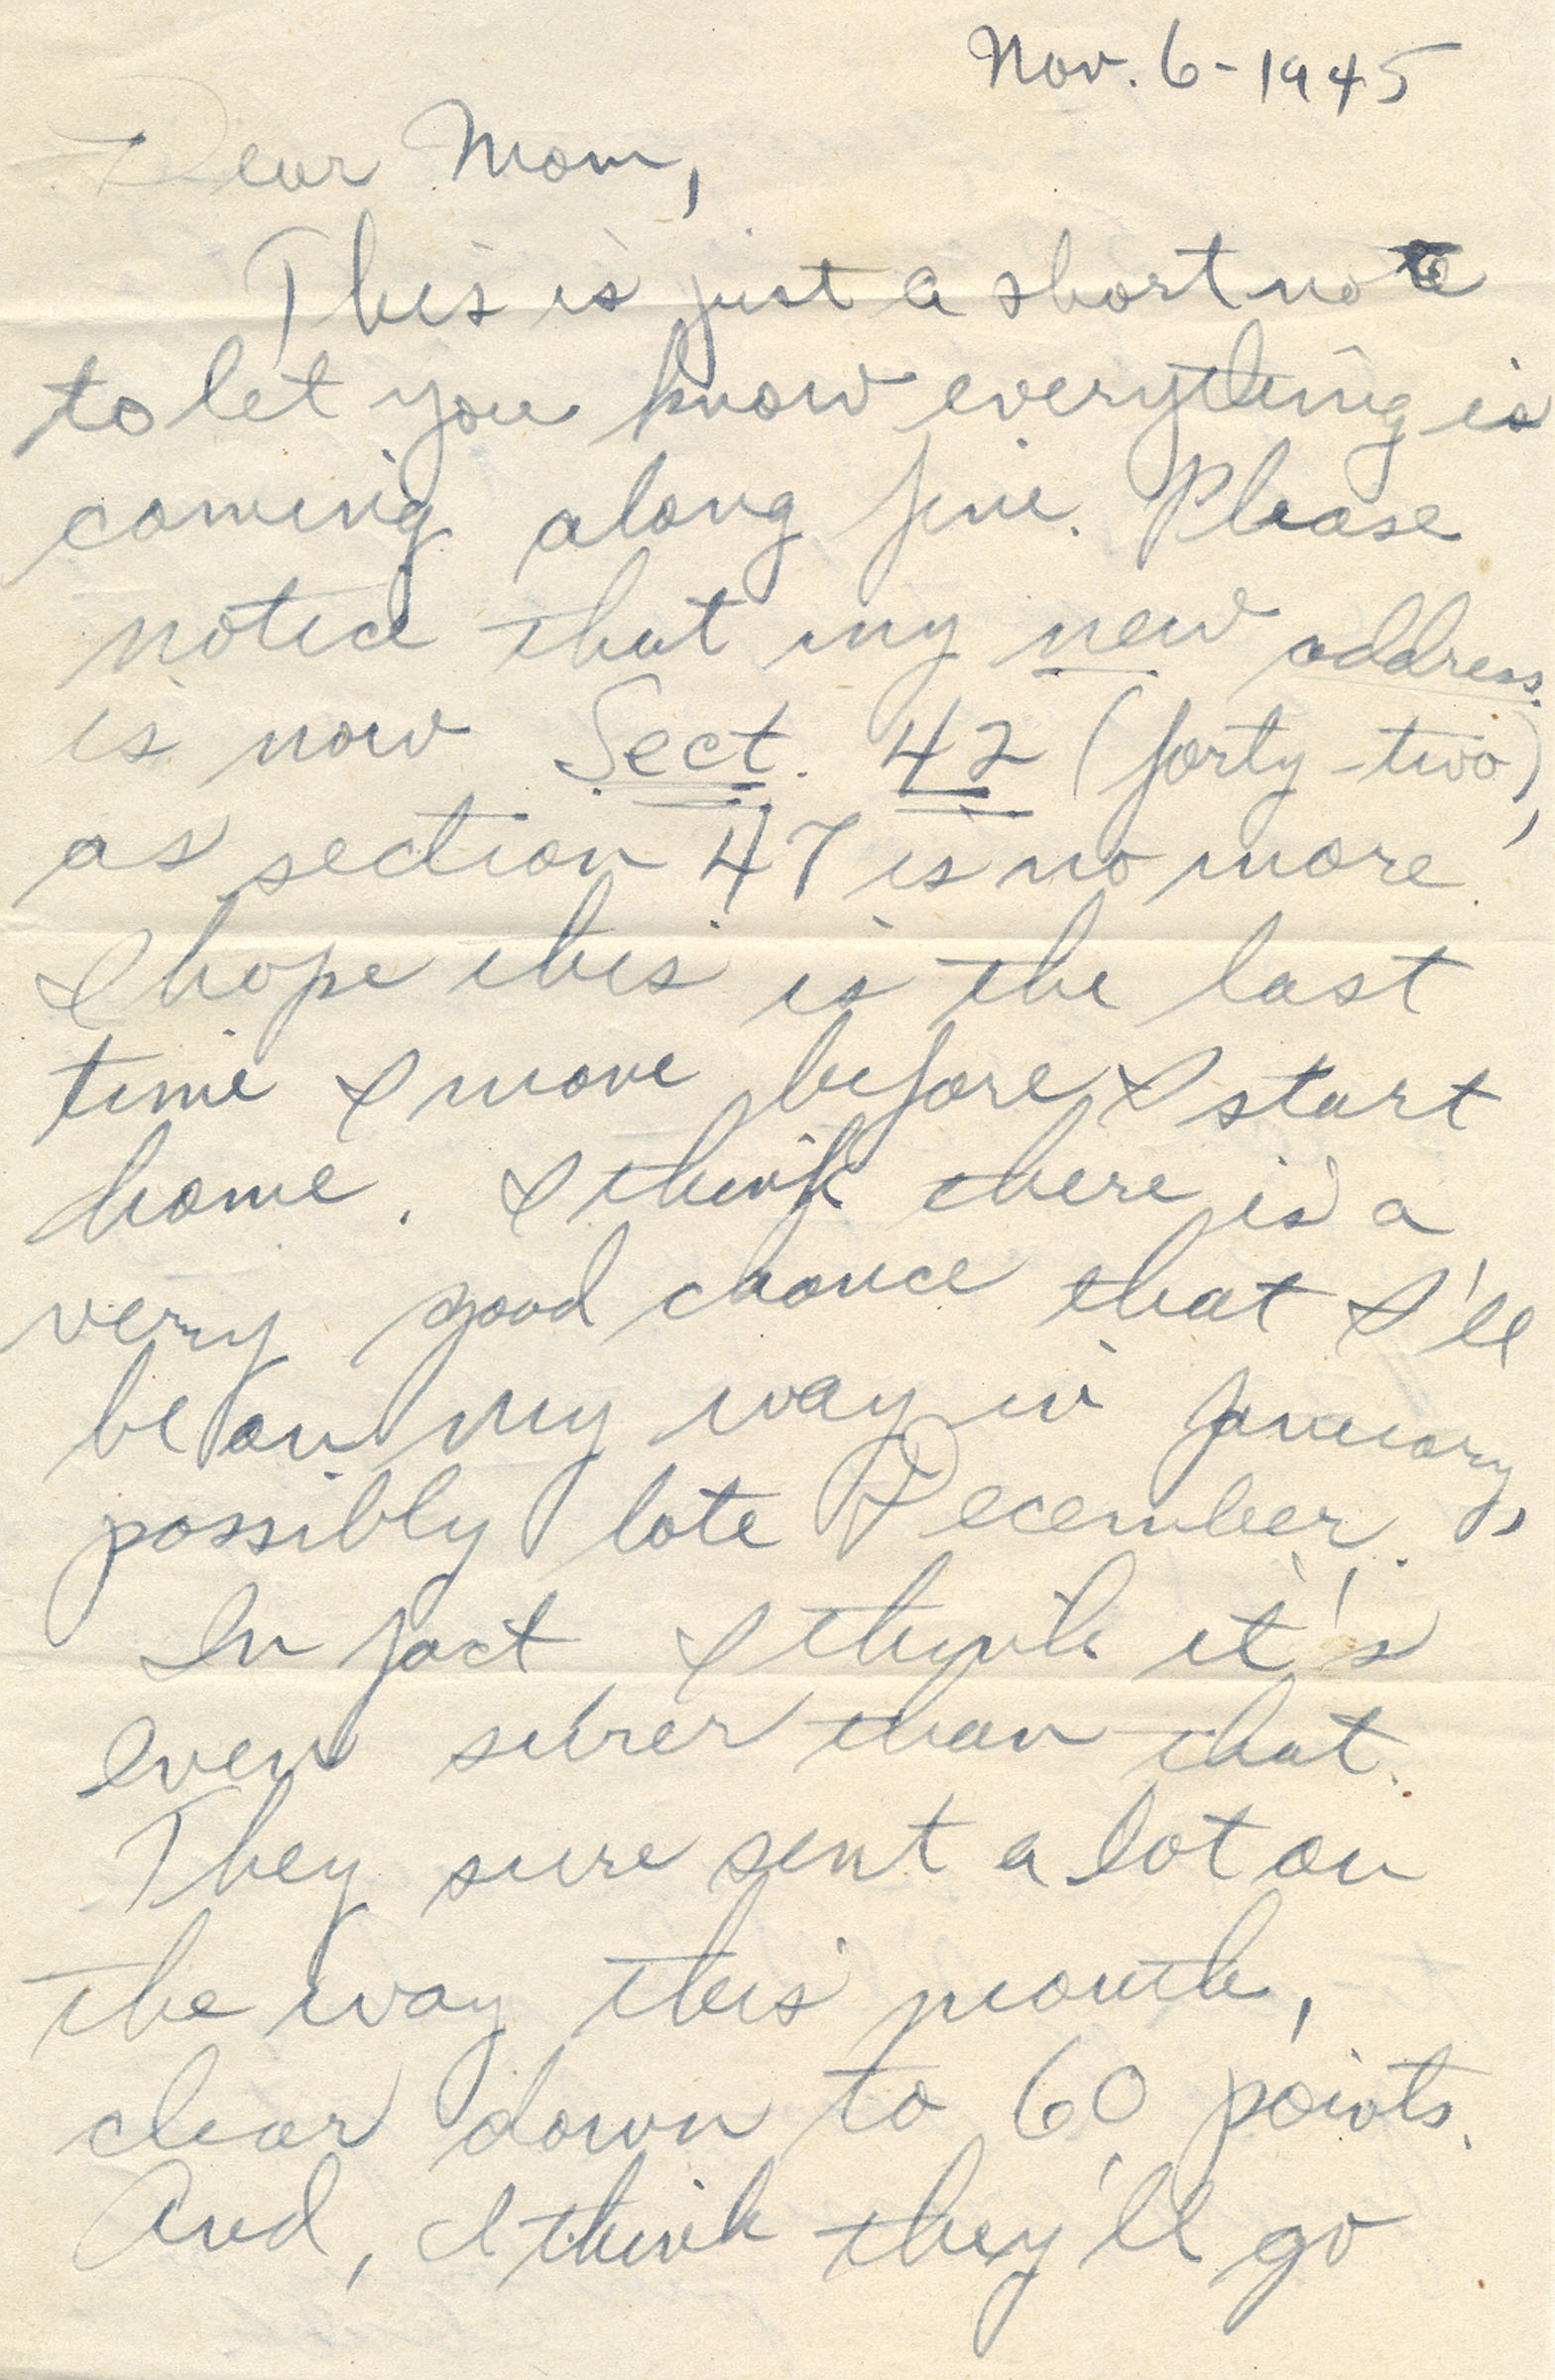 Nov. 6-1945
Dear Mom,
This is just a short note
to let you know everything is
coming along fine. Please
notice that my new address
is now Sect. 42 (forty-two),
as section 47 is no more.
I hope this is the last
time I move before I start
home. I think there is a
very good chance that I'll
be on my way in January,
possibly late December.
In fact I think it's
even surer than that.
They sure sent a lot on
the way this month,
clear down to 60 points.
And, I think they'll go